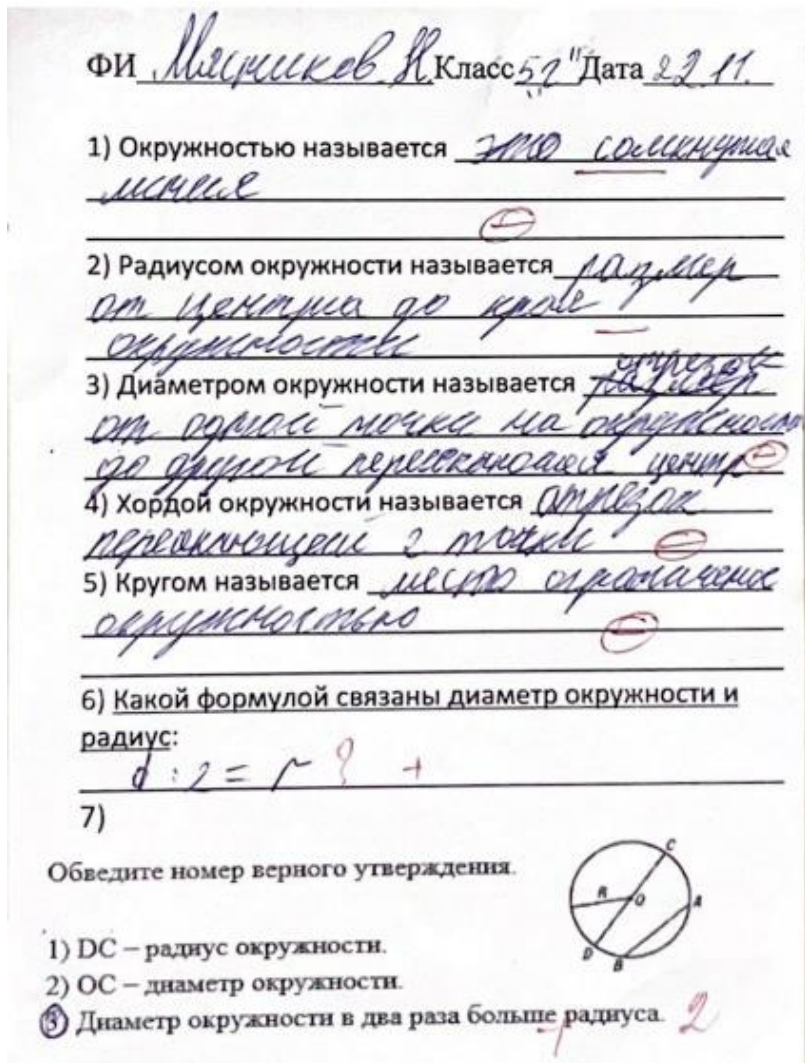 ФИ Мячиков Н. Класс 5г" Дата 22.11.
1) Окружностью называется это сомкнутая
линия
2) Радиусом окружности называется размер
от центра до края
окружности
отрезок
3) Диаметром окружности называется размер
от одной точки на окружности
до другой пересекающая центр
4) Хордой окружности называется отрезок
2 точки
5) Кругом называется место ограниченое
окружностью
6) Какой формулой связаны диаметр окружности и
радиус:
d : 2 = r ? +
7)
Обведите номер верного утверждения.
1) DC – радиус окружности.
2) OC – диаметр окружности.
3) Диаметр окружности в два раза больше радиуса. 2
C
R O A
D B